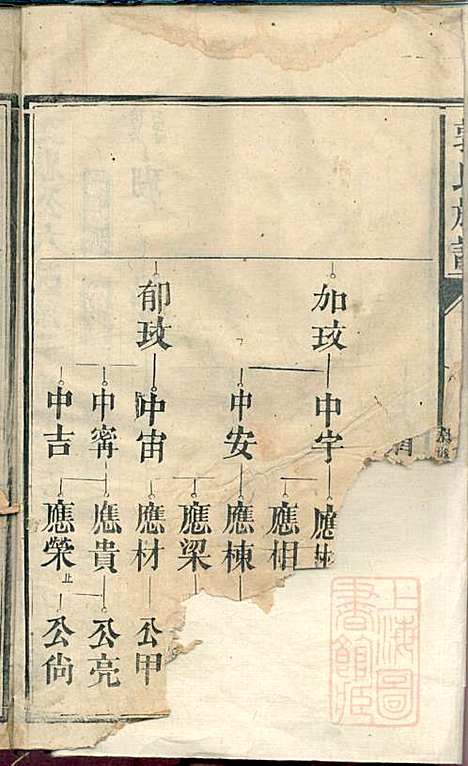 郭氏族譜
加玟
郁玟
中宇
中安
中宙
中甯
中吉
應相
應棟
應梁
應材
應貴
應榮
止
公甲
公亮
公尙
上海圖
書館藏